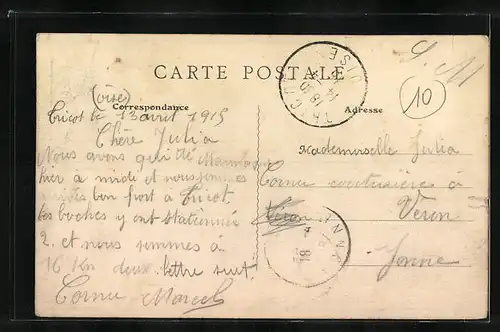 S. M
CARTE POSTALE
TRICOT OISE
(oise)
(10)
Correspondance
Adresse
Tricot le 13 avril 1915
Chère Julia
Nous avons quitté
hier à midi et nous sommes
bon port à Tricot.
les boches y ont stationnée
2. et nous sommes a
16 Km deux. lettre suit.
Cornu Marcel
Mademoiselle Julia
Cornu couturière à
Véron
Yonne